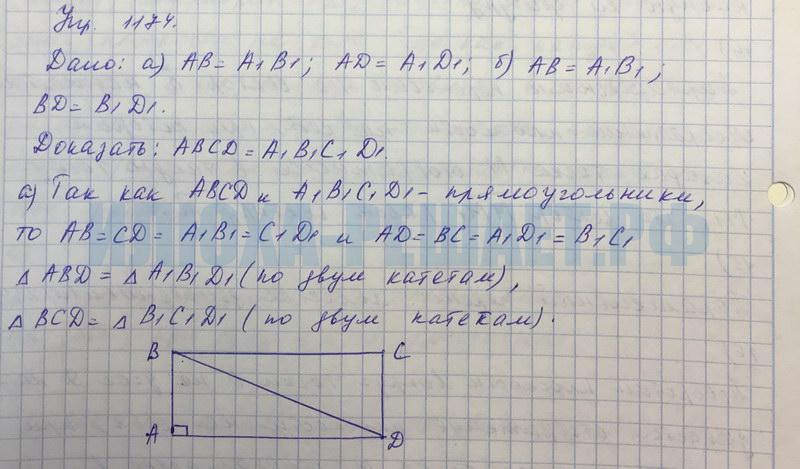 Упр. 1174.
Дано: а) AB = A₁B₁; AD = A₁D₁; б) AB = A₁B₁;
BD = B₁D₁.
Доказать: ABCD = A₁B₁C₁D₁.
а) Так как ABCD и A₁B₁C₁D₁ - прямоугольники,
ИЛЮХА-РЕШАЕТ.РФ
то AB = CD = A₁B₁ = C₁D₁ и AD = BC = A₁D₁ = B₁C₁
△ ABD = △ A₁B₁D₁ (по двум катетам),
△ BCD = △ B₁C₁D₁ (по двум катетам).
B C
A D